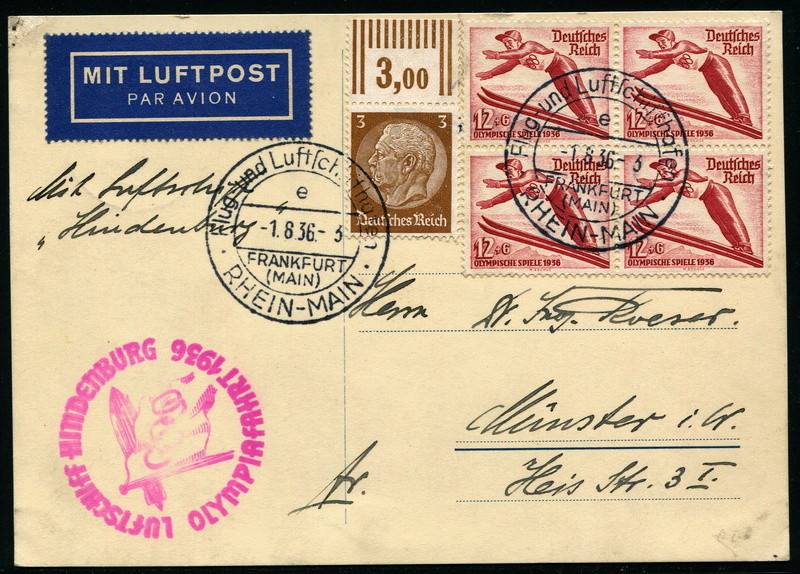 MIT LUFTPOST
PAR AVION
3,00
3 3
Deutsches Reich
Deutsches Reich
12+6
OLYMPISCHE SPIELE 1936
Deutsches Reich
12+6
OLYMPISCHE SPIELE 1936
Deutsches Reich
12+6
OLYMPISCHE SPIELE 1936
Deutsches Reich
12+6
OLYMPISCHE SPIELE 1936
Flug- und Luftschiffhafen
e
-1.8.36.- 3
FRANKFURT
(MAIN)
· RHEIN-MAIN ·
Flug- und Luftschiffhafen
e
-1.8.36.- 3
FRANKFURT
(MAIN)
RHEIN-MAIN
Mit Luftschiff
„Hindenburg"
Herrn
Dr. Ing. Roeser.
Münster i. W.
Heis Str. 3 I.
fr.
LUFTSCHIFF HINDENBURG
OLYMPIAFAHRT 1936